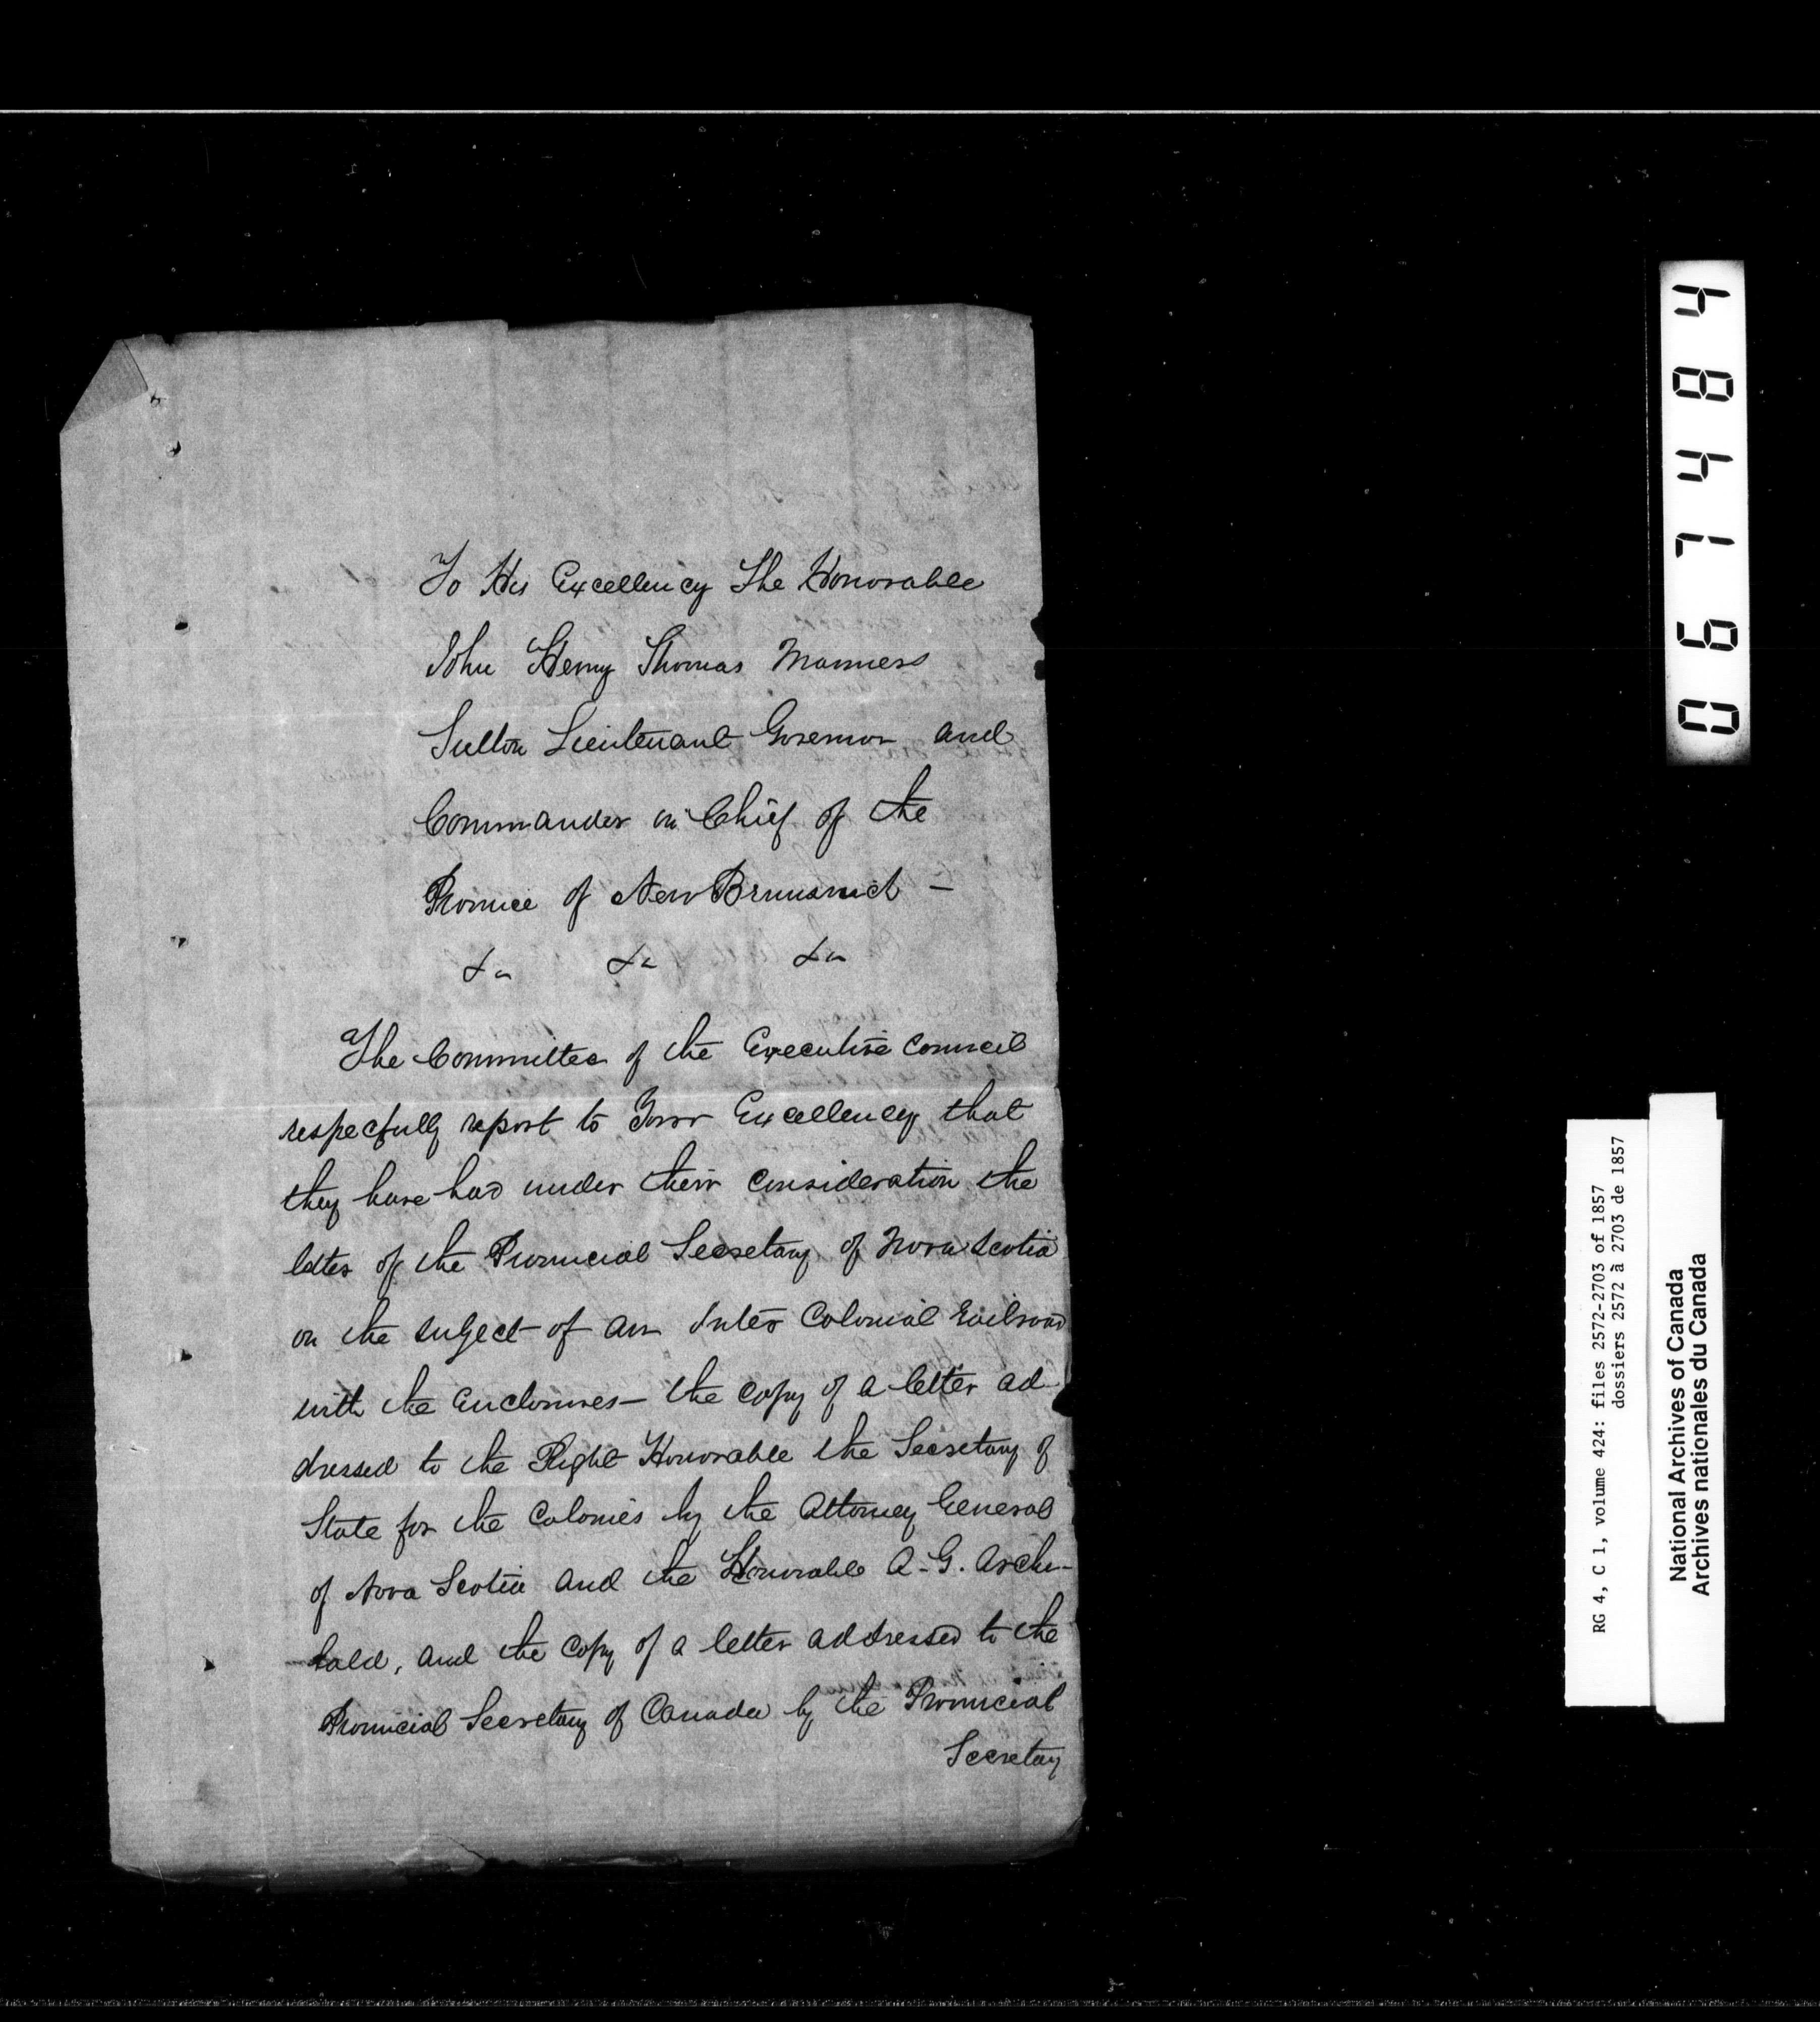 To His Excellency The Honorable
John Henry Thomas Manners
Sutton Lieutenant Governor and
Commander in Chief of the
Province of New Brunswick –
&c &c &c
The Committee of the Executive Council
respecfully report to Your Excellency that
they have had under their consideration the
letter of the Provincial Secretary of Nova Scotia
on the subject of an Inter Colonial Railroad
with the Enclosures – the copy of a letter ad-
dressed to the Right Honorable the Secretary of
State for the Colonies by the Attorney General
of Nova Scotia and the Honorable A. G. Archi-
bald, and the copy of a letter addressed to the
Provincial Secretary of Canada by the Provincial
Secretary
067484
RG 4, C 1, volume 424: files 2572-2703 of 1857
dossiers 2572 à 2703 de 1857
National Archives of Canada
Archives nationales du Canada